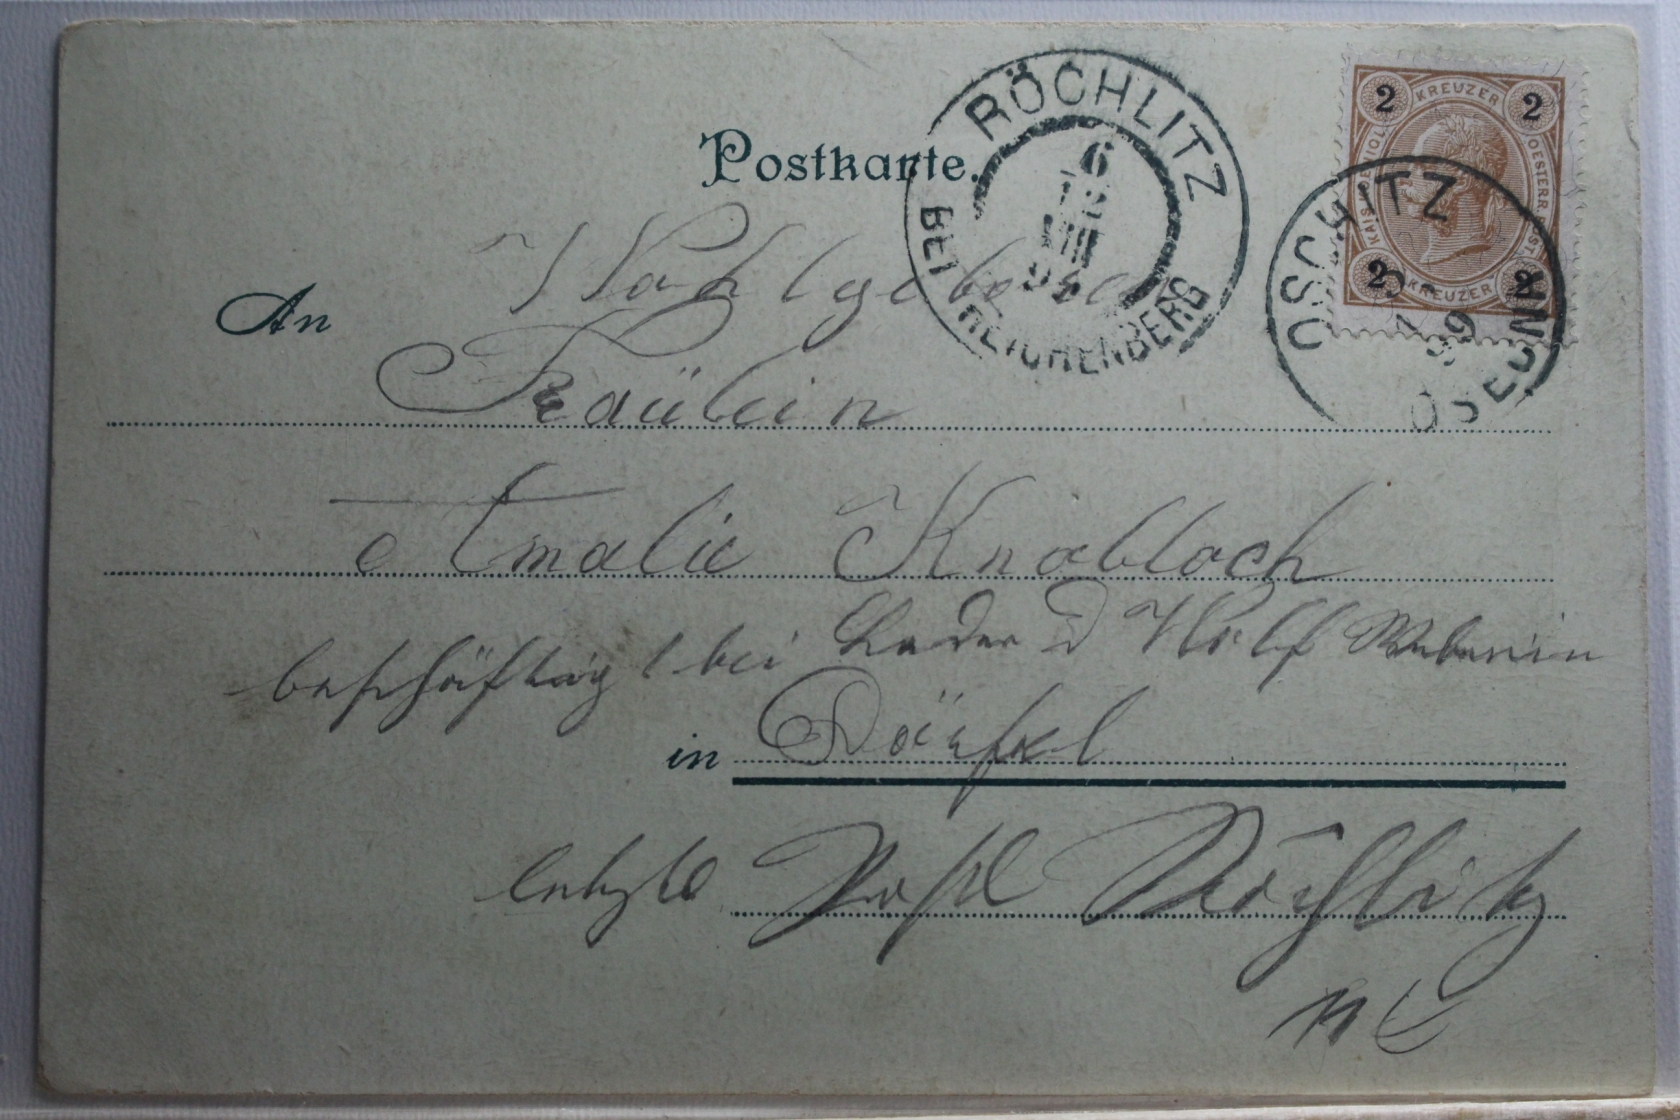 Postkarte.
RÖCHLITZ
BEI REICHENBERG
6
12
VIII
2 KREUZER 2
KAIS. KOENIGL. OESTERR. POST
2 KREUZER 2
OSCHITZ
OSEČNÁ
An
Wohlgeboren
Fräulein
Amalie Knobloch
beschäftigt bei Wolf Weberin
in Dörfel
letzte Post Röchlitz